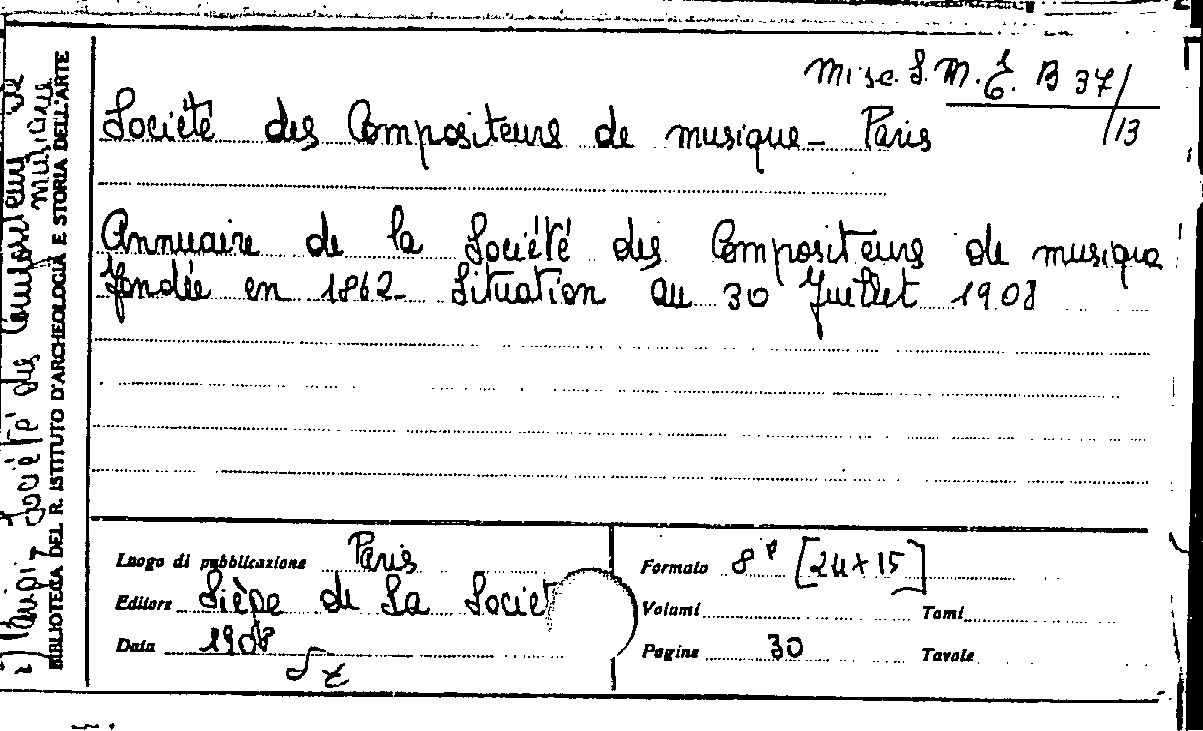 Misc. S. M. E. B 37/13
Société des Compositeurs de musique - Paris
Annuaire de la Société des Compositeurs de musique
fondée en 1862 - Situation au 30 Juillet 1908
Luogo di pubblicazione Paris
Editore Siège de la Societ
Data 1908
Formato 8º [24 x 15]
Volumi
Tomi
Pagine 30
Tavole
BIBLIOTECA DEL R. ISTITUTO D'ARCHEOLOGIA E STORIA DELL'ARTE
Parigi, Société des Compositeurs de
musique